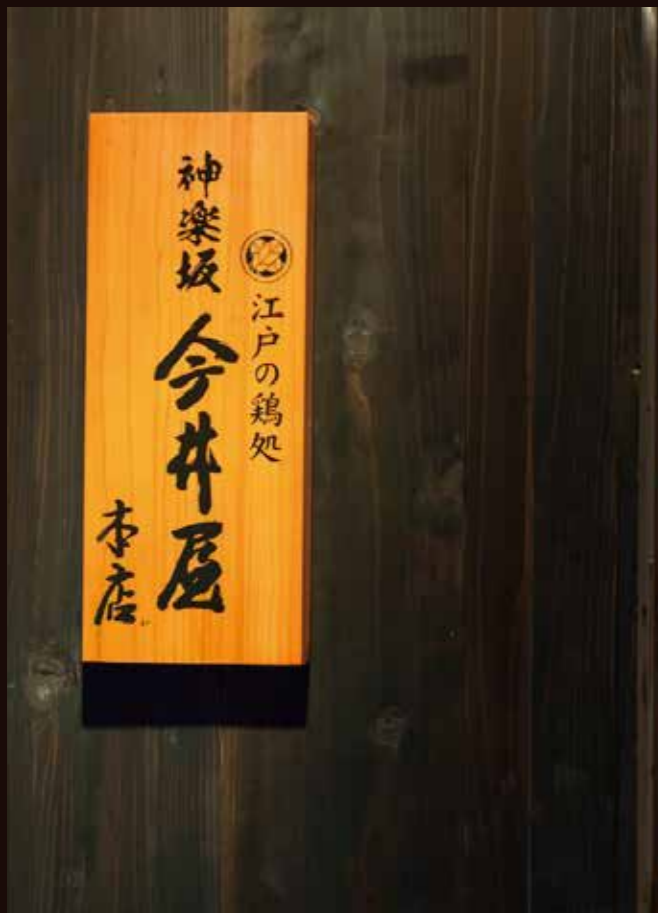 江戸の鶏処
神楽坂 今井屋
本店